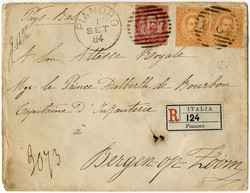 Pays Bas
PIANORO
1
SET
84
A Son Altesse Royale
Mgr le Prince Adalberth de Bourbon
Capitaine d'Infanterie
R
ITALIA
124
Pianoro
3073
Bergen op Zoom